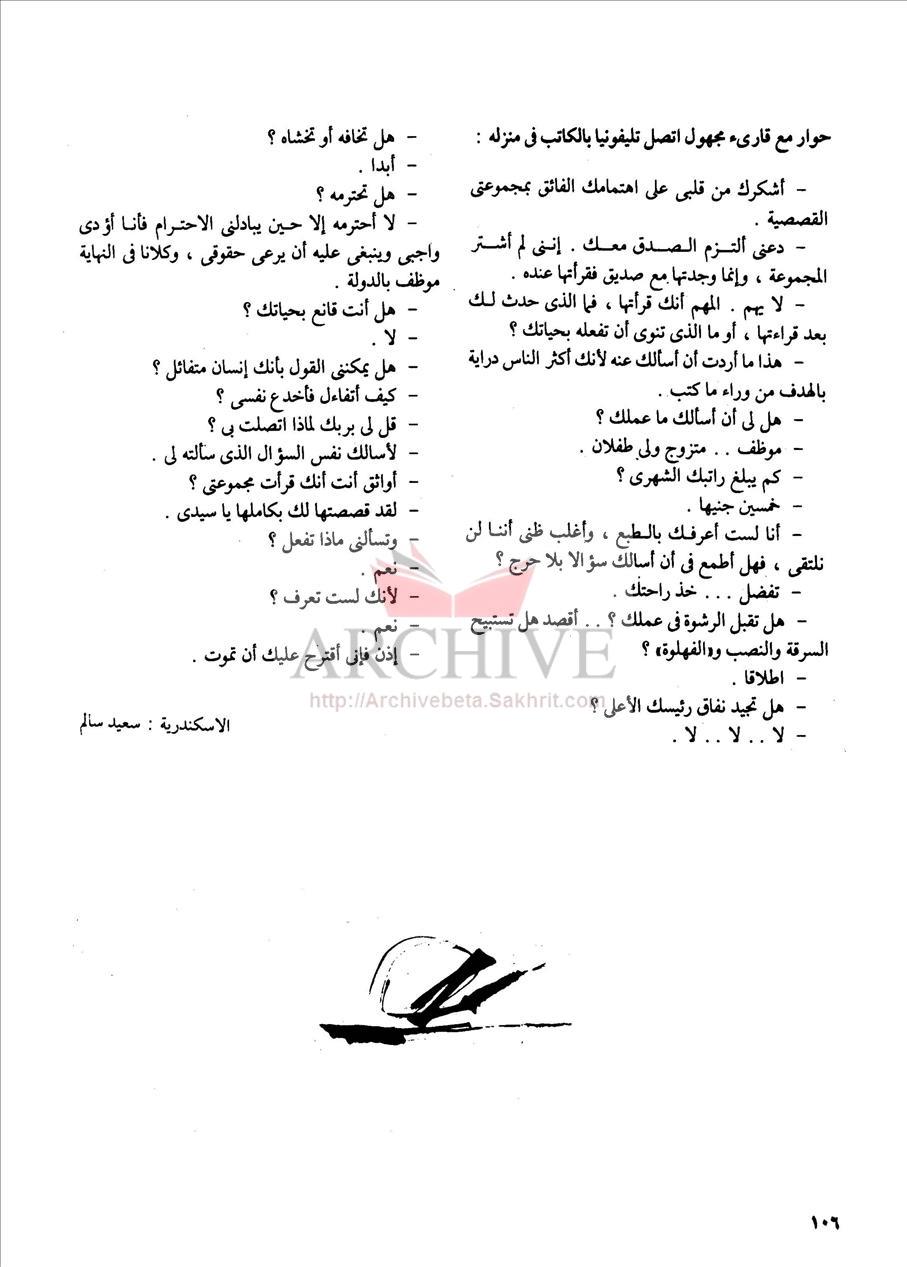 حوار مع قارىء مجهول اتصل تليفونيا بالكاتب فى منزله :
– أشكرك من قلبى على اهتمامك الفائق بمجموعتى
القصصية .
– دعنى ألتزم الصدق معك . إننى لم أشتر
المجموعة ، وإنما وجدتها مع صديق فقرأتها عنده .
– لا يهم . المهم أنك قرأتها ، فما الذى حدث لك
بعد قراءتها ، أو ما الذى تنوى أن تفعله بحياتك ؟
– هذا ما أردت أن أسألك عنه لأنك أكثر الناس دراية
بالهدف من وراء ما كتب .
– هل لى أن أسألك ما عملك ؟
– موظف . . متزوج ولى طفلان .
– كم يبلغ راتبك الشهرى ؟
– خمسين جنيها .
– أنا لست أعرفك بالطبع ، وأغلب ظنى أننا لن
نلتقى ، فهل أطمع فى أن أسالك سؤالا بلا حرج ؟
– تفضل . . . خذ راحتك .
– هل تقبل الرشوة فى عملك ؟ . . أقصد هل تستبيح
السرقة والنصب و«الفهلوة» ؟
– اطلاقا .
– هل تجيد نفاق رئيسك الأعلى ؟
– لا . . لا . . لا .
– هل تخافه أو تخشاه ؟
– أبدا .
– هل تحترمه ؟
– لا أحترمه إلا حين يبادلنى الاحترام فأنا أؤدى
واجبى وينبغى عليه أن يرعى حقوقى ، وكلانا فى النهاية
موظف بالدولة .
– هل أنت قانع بحياتك ؟
– لا .
– هل يمكننى القول بأنك إنسان متفائل ؟
– كيف أتفاءل فأخدع نفسى ؟
– قل لى بربك لماذا اتصلت بى ؟
– لأسالك نفس السؤال الذى سألته لى .
– أواثق أنت أنك قرأت مجموعتى ؟
– لقد قصصتها لك بكاملها يا سيدى .
– وتسألنى ماذا تفعل ؟
– نعم .
– لأنك لست تعرف ؟
– نعم
– إذن فإنى أقترح عليك أن تموت .
الاسكندرية : سعيد سالم
ARCHIVE
http://Archivebeta.Sakhrit.com
١٠٦